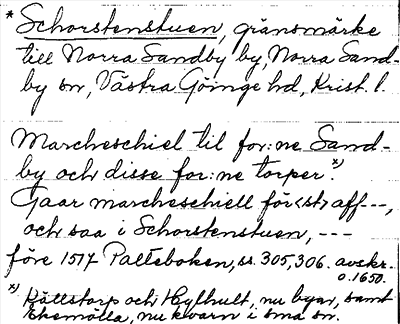 * Schorstenstuen, gränsmärke
till Norra Sandby by, Norra Sand-
by sn, Västra Göinge hd, Krist. l.
Marcheschiel til for:ne Sand-
by och disse for:ne torper*).
Gaar marcheschiell för<st> aff---,
och saa i Schorstenstuen, ---
före 1597 Palteboken, ss. 305, 306. avskr.
o. 1650.
*) Källstorp och Hylhult, nu byar, samt
Ekemölla, nu kvarn i sma sn.